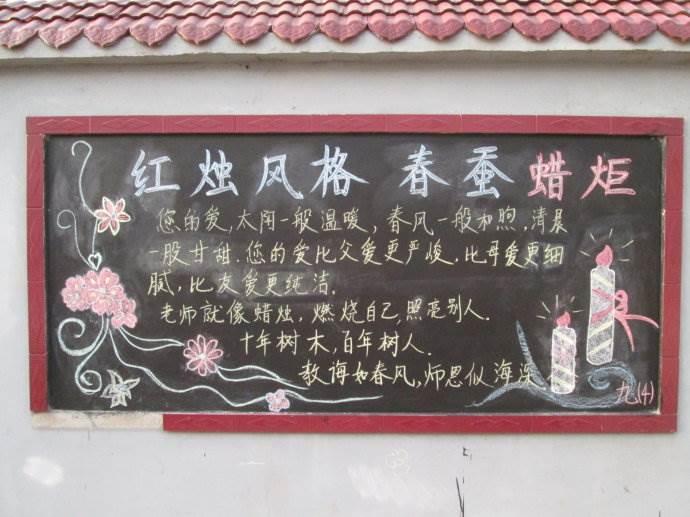 红烛风格 春蚕蜡炬
您的爱,太阳一般温暖,春风一般和煦,清晨
一股甘甜.您的爱比父爱更严峻.比哥爱更细
腻,比友爱更纯洁.
老师就像蜡烛,燃烧自己,照亮别人.
十年树木,百年树人.
教诲如春风,师恩似海深
九(4)